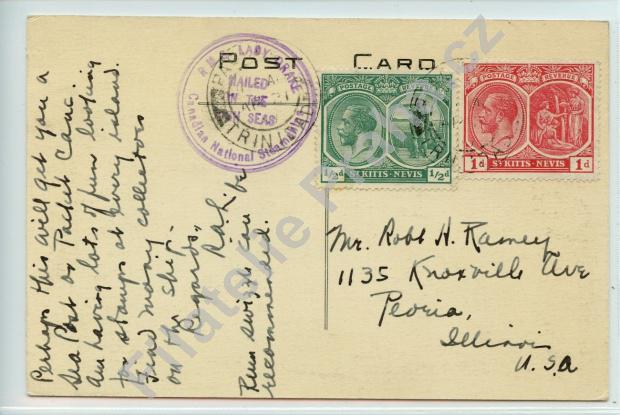 POST CARD
R.M.S. LADY DRAKE
MAILED
ON THE
HIGH SEAS
Canadian National Steamships
TRINIDAD
POSTAGE REVENUE
½d ½d
ST KITTS-NEVIS
POSTAGE REVENUE
1d 1d
ST KITTS-NEVIS
Perhaps this will get you a
Sea Post or Packet Canc.
Am having lots of fun looking
for stamps at every island.
Find many collectors
on the ship.
Regards,
Rum swizzle can be
recommended.
Mr. Robt H. Ramey
1135 Knoxville Ave
Peoria,
Illinois
U.S.A
Filatelie